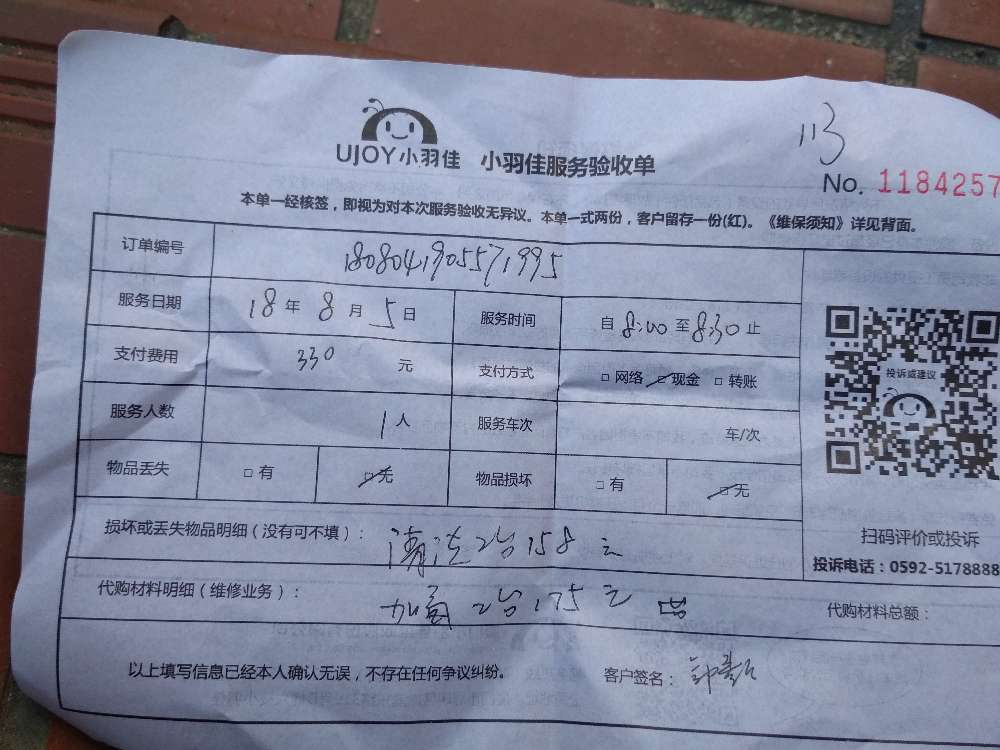 113
UJOY小羽佳 小羽佳服务验收单
No. 1184257
本单一经核签，即视为对本次服务验收无异议。本单一式两份，客户留存一份(红)。《维保须知》详见背面。
订单编号 1808041905571995
服务日期 18年8月5日 服务时间 自8:00至8:30止
支付费用 330元 支付方式 □网络 ☑现金 □转账
服务人数 1人 服务车次 车/次
物品丢失 □有 ☑无 物品损坏 □有 ☑无
损坏或丢失物品明细（没有可不填）： 清洁2台158元
代购材料明细（维修业务）： 加氟2台175元 代购材料总额：
以上填写信息已经本人确认无误，不存在任何争议纠纷。 客户签名：
投诉或建议
扫码评价或投诉
投诉电话：0592-5178888